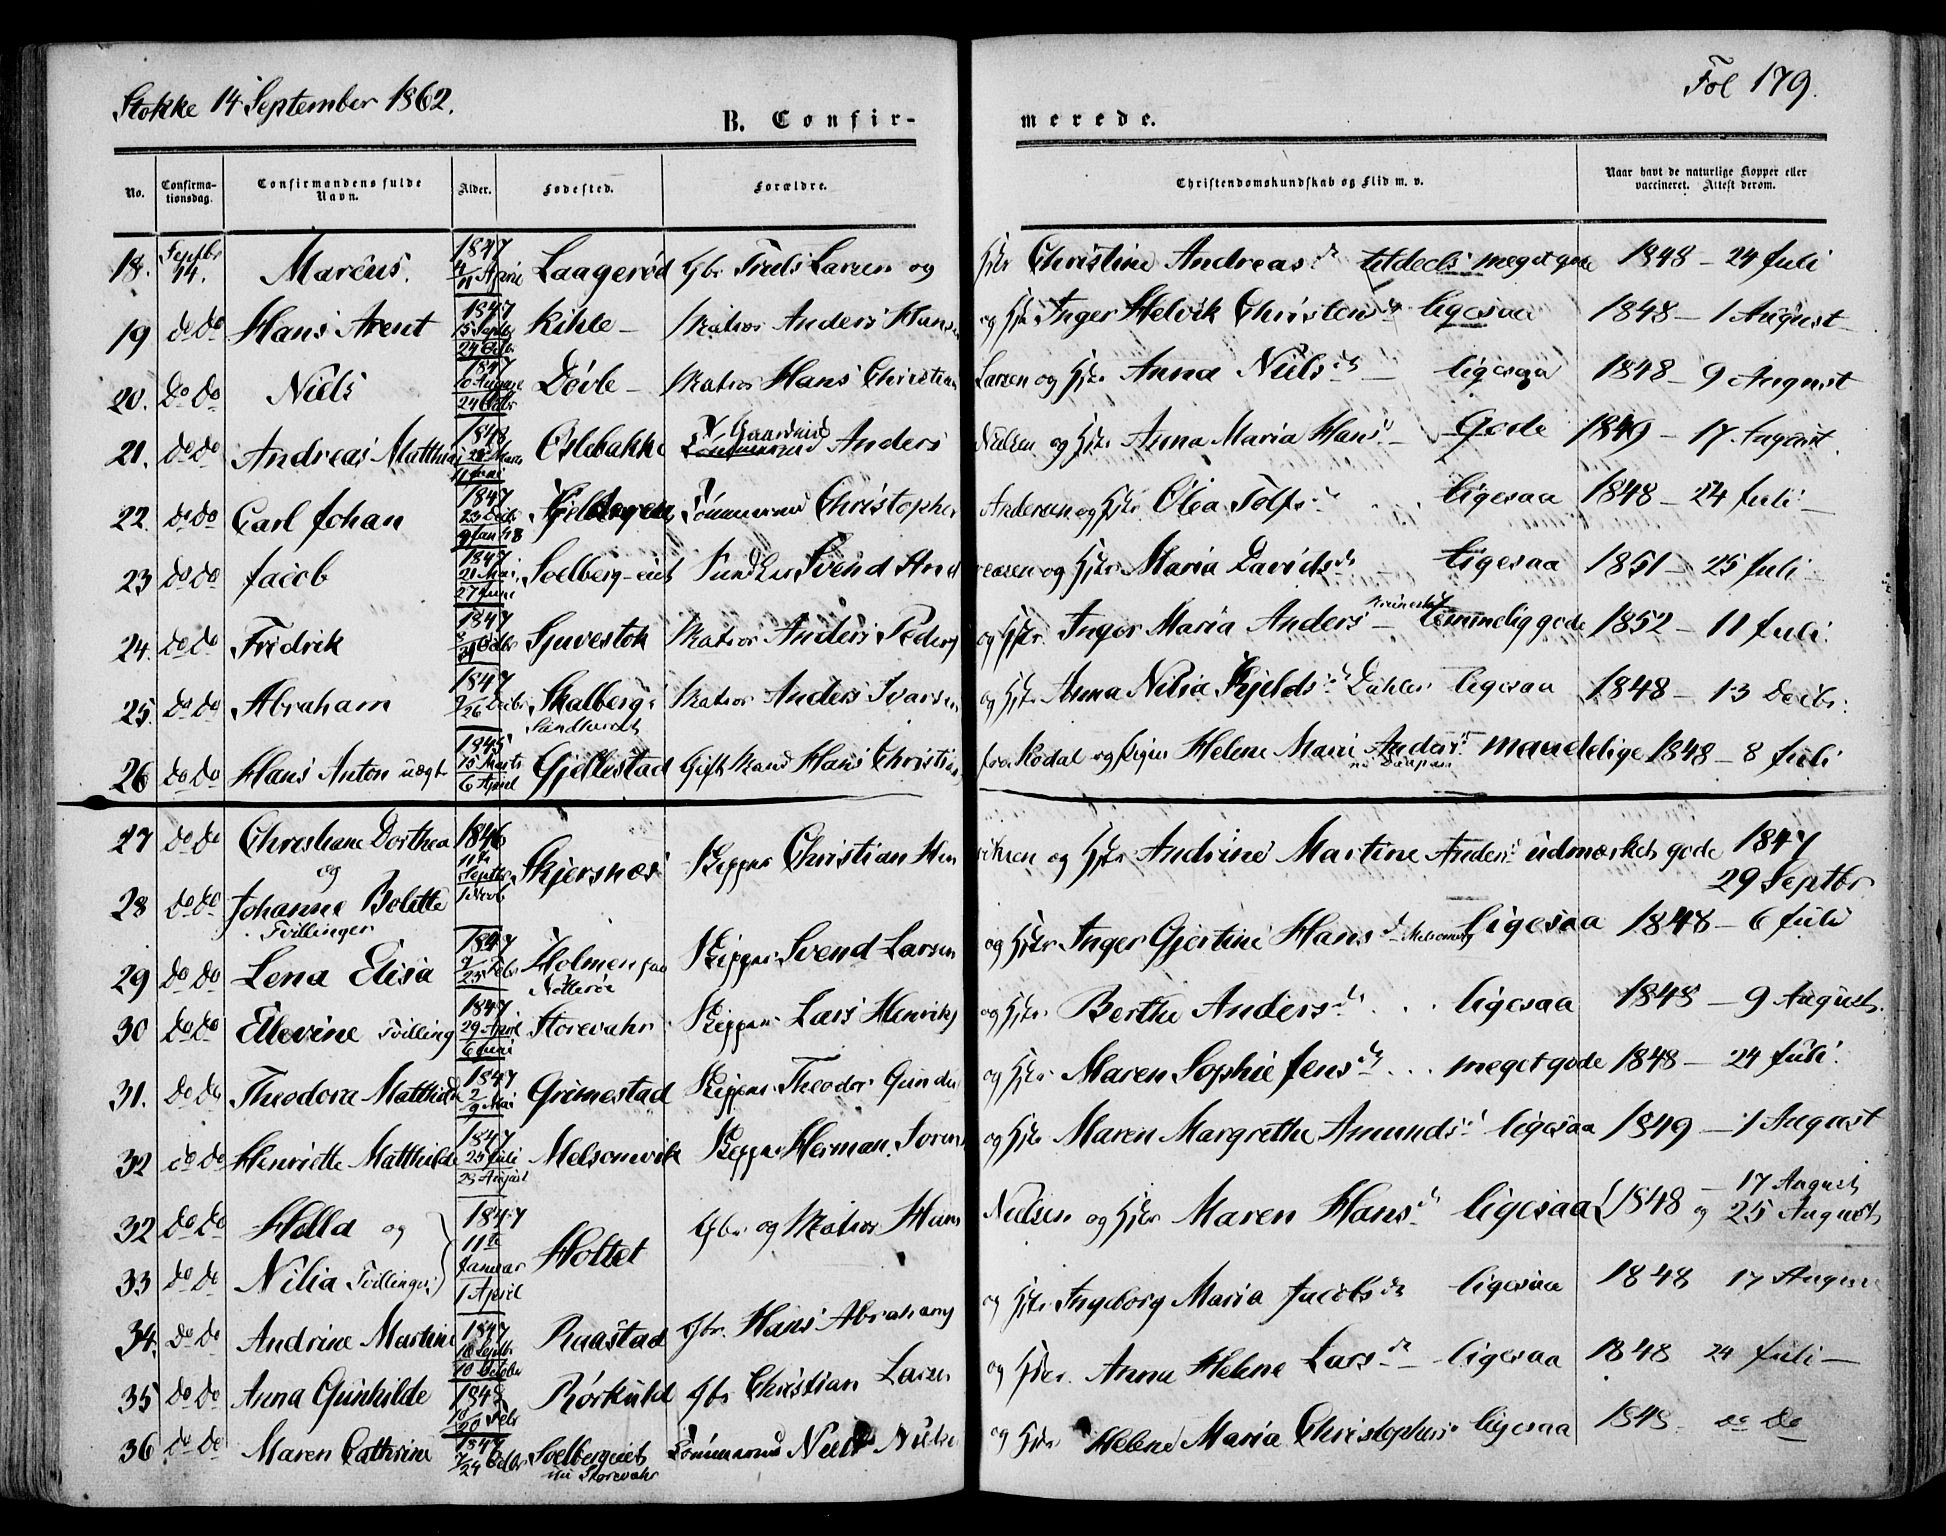 Stokke 14 September 1862.
Fol 179.
B. Confir-
merede.
No. Confirma-tionsdag. Confirmandens fulde Navn. Alder. Fødested. Forældre. Christendomskundskab og Flid m. v. Naar havt de naturlige Kopper eller vaccineret. Attest derom.
18. Septbr 14. Marcus. 1847 April Laagerød Gbr Truls Larsen og Christine Andreas meget gode 1848 – 24 Juli
19 do do Hans Arent 1847 15 Septbr Kihle – Matros Anders Hans og Inger Helvik Christens ligesaa 1848 – 1 August
20. Do Do Niels 1847 10 August 24 Octbr Døvle – Matros Hans Christian Larsen og Anna Niels ligesaa 1848 – 9 August
21. do do Andreas Matthias 1848 Marts Oslebakke Gaardmd Anders Nielsen og Anna Maria Hans Gode 1849 – 17 August
22. do do Carl Johan 1847 23 Decbr 9 Jan 48 Tømmermd Christopher Andersen og Olea Tolfs ligesaa 1848 – 24 Juli
23 do do Jacob 1847 21 Mai 27 Juni Soelberg-eiet Svend And reasen og Maria Davids ligesaa 1851 – 25 Juli
24. do do Fredrik 1847 Octbr Sjuvestok Matros Anders Peders og Inger Maria Anders temmelig gode 1852 – 11 Juli
25 do do Abraham 1847 9/26 Decbr Skalberg Matros Anders Ivarsen og Anna Nilia Kjelds ligesaa 1848 – 13 Decbr
26 do do Hans Anton uægt 1845 15 Marts 6 April Gjellestad Gift Mand Hans Christian fra Kodal og Pigen Helene Marie Anders maadelige 1848 – 8 Juli
27 do do Christiane Dorthea og 1846 11te Septbr 1 Novb Skjersnæs Skipper Christian Hen riksen og Andrine Martine Anders udmærket gode 1847 29 Septbr
28 do do Johanne Bolette Tvillinger
29 do do Lena Elisa 1847 Febr Holmen paa Nøtterøe Skipper Svend Larsen og Inger Gjertine Hans Melsomvig ligesaa 1848 – 6 Juli
30 do do Ellevine Tvilling 1847 29 April 6 Juni Storevahr Skipper Lars Henriks og Berthe Anders ligesaa 1848 – 9 August
31. Do do Theodora Matthilde 1847 2/9 Mai Grimestad Skipper Theodor Gunder og Maren Sophie Jens meget gode 1848 – 24 Juli
32 do do Henriette Matthilde 1847 25 Juli 23 August Melsomvik Skipper Herman Sørens og Maren Margrethe Amunds ligesaa 1849 – 1 August
32 do do Hella og 1847 11te Januar 1 April Holtet Gbr og Matros Hans Nielsen og Maren Hans ligesaa 1848 – 17 August og 25 August
33 do do Nilia Tvillinger
34. Do do Andrine Martine 1847 10 Septbr 10 October Raastad Gbr. Hans Abrahams og Ingeborg Maria Jacobs ligesaa 1848 17 August
35 do do Anna Gunhilde 1848 Febr Rørkuld Gbr Christian Larsen og Anna Helene Lars ligesaa 1848 24 Juli –
36 do do Maren Cathrine 1847 7/24 Octbr Soelbergeiet nu Storevahr Tømmermd Niels Niels og Helene Maria Christophers ligesaa 1848 do do